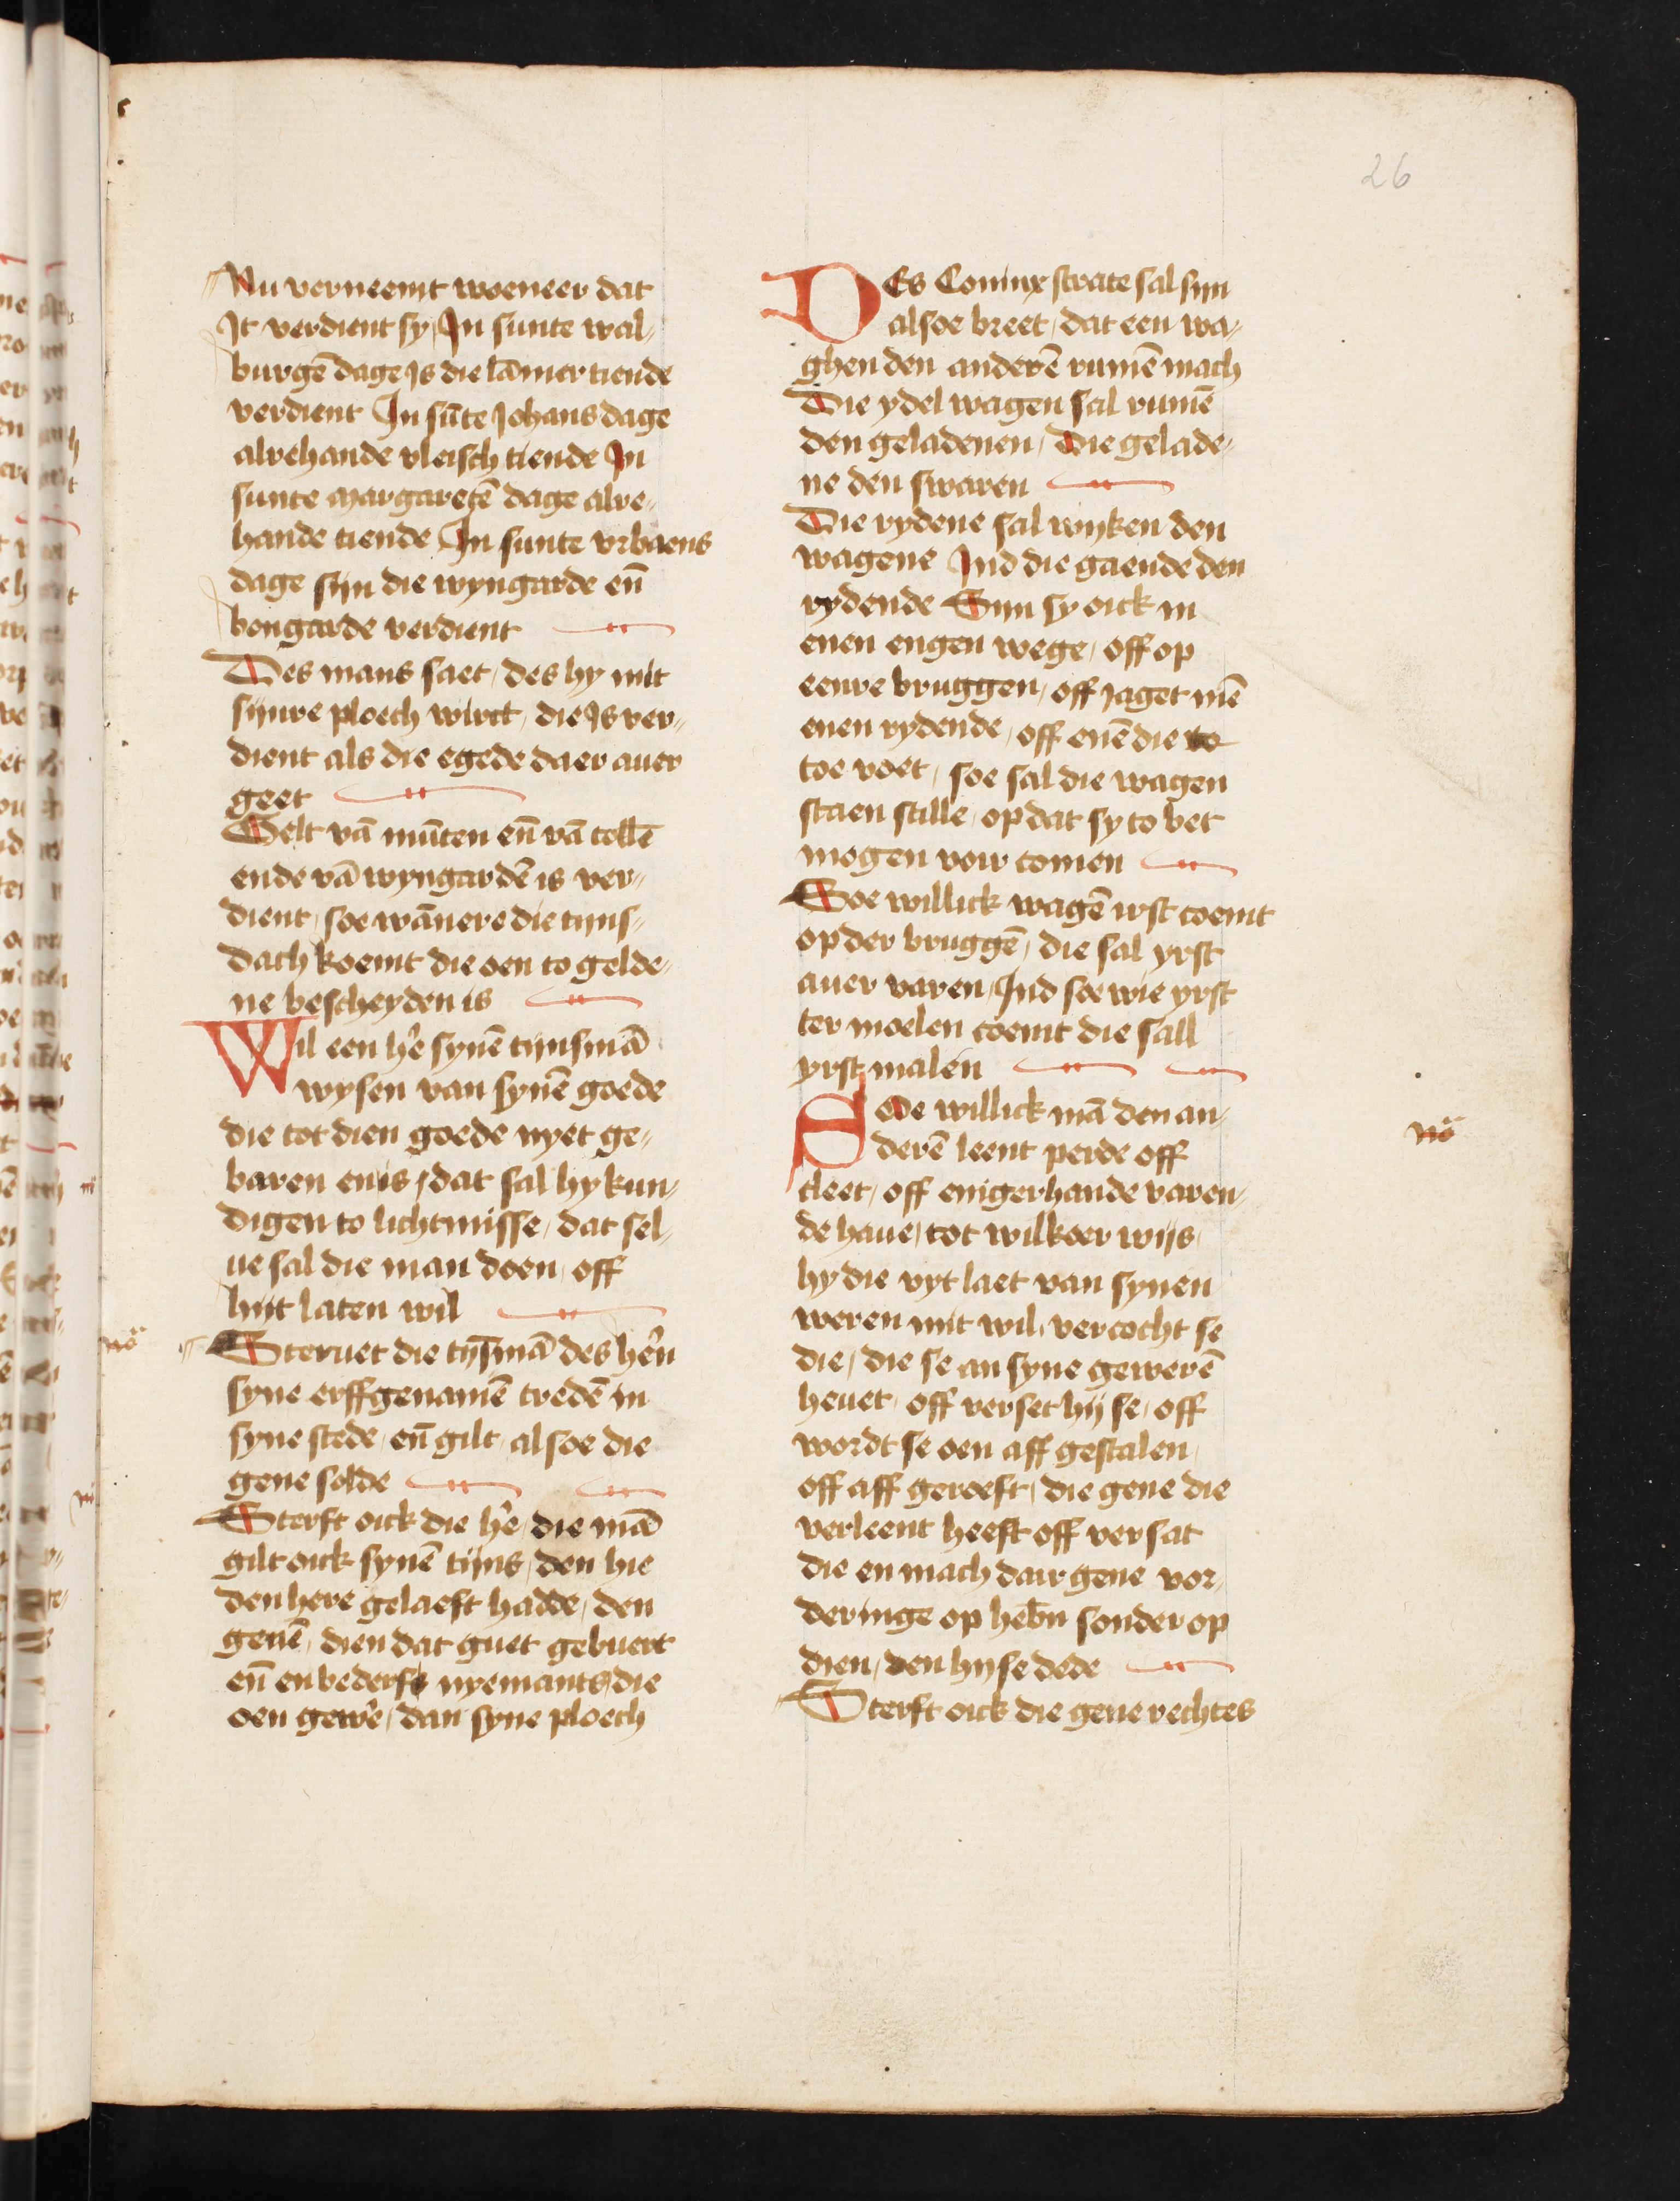 26
Nu verneemt woeneer dat
It verdient sy / In sunte wal⸗
burgē dage Is die lāmer tiende
verdient In sūte Johans dage
alrehande vleisch tiende In
sunte margaretē dage alre⸗
hande tiende In sunte vrbaens
dage sijn die wyngarde eñ
bongarde verdient
Des mans saet / des hy mit
sijnre ploech wirct / die Is ver⸗
dient als die egede daer auer
geet
Gelt vā mūten eñ vā tollē
ende vā wyngardē is ver⸗
dient / soe wānere die tijns⸗
dach koemt die oen to gelde⸗
ne bescheyden is
Wil een hẽ synē tijnsmā
wysen van synē goede
die tot dien goede nyet ge⸗
baren en is / dat sal hy kun⸗
digen to lichtmisse / dat sel⸗
ue sal die man doen / off
hijt laten wil
nō Steruet die tijsmā des hẽn
syne erffgenamē tredē in
syne stede / eñ gilt / alsoe die
gene solde
Sterft oick die hẽ / die mā
gilt oick synē tijns / den hie
den here gelaeft hadde / den
genē / dien dat guet gebuert
eñ en bederfs nyemants / die
oen gewẽ / dan syne ploech
Des Coninx strate sal sijn
alsoe breet / dat een wa⸗
ghen den anderē rumē mach
Die ydel wagen sal rumē
den geladenen / Die gelade⸗
ne den swaren
Die rydene sal wyken den
wagene Ind die gaende den
rydende Sijn sy oick in
enen engen wege / off op
eenre bruggen / off jaget mē
enen rydende / off enē die to
toe voet / soe sal die wagen
staen stille / op dat sy to bet
mogen voir comen
Soe willick wagē irst coemt
op der bruggē / die sal yrst
auer varen / Ind soe wie yrst
ter moelen coemt die sall
yrst malen
Soe willick mā den an⸗
derē leent perde off nō
cleet / off enigerhande varen⸗
de haue / tot wilkoer wijs /
hy die vyt laet van synen
weren mit wil / vercocht se
die / die se an syne gewerē
heuet / off verset hij se / off
wordt se oen aff gestalen /
off aff geroeft / die gene die
verleent heeft off versat
die en mach dair gene vor⸗
deringe op hebn̄ sonder op
dien / den hij se dede
Sterft oick die gene rechtes